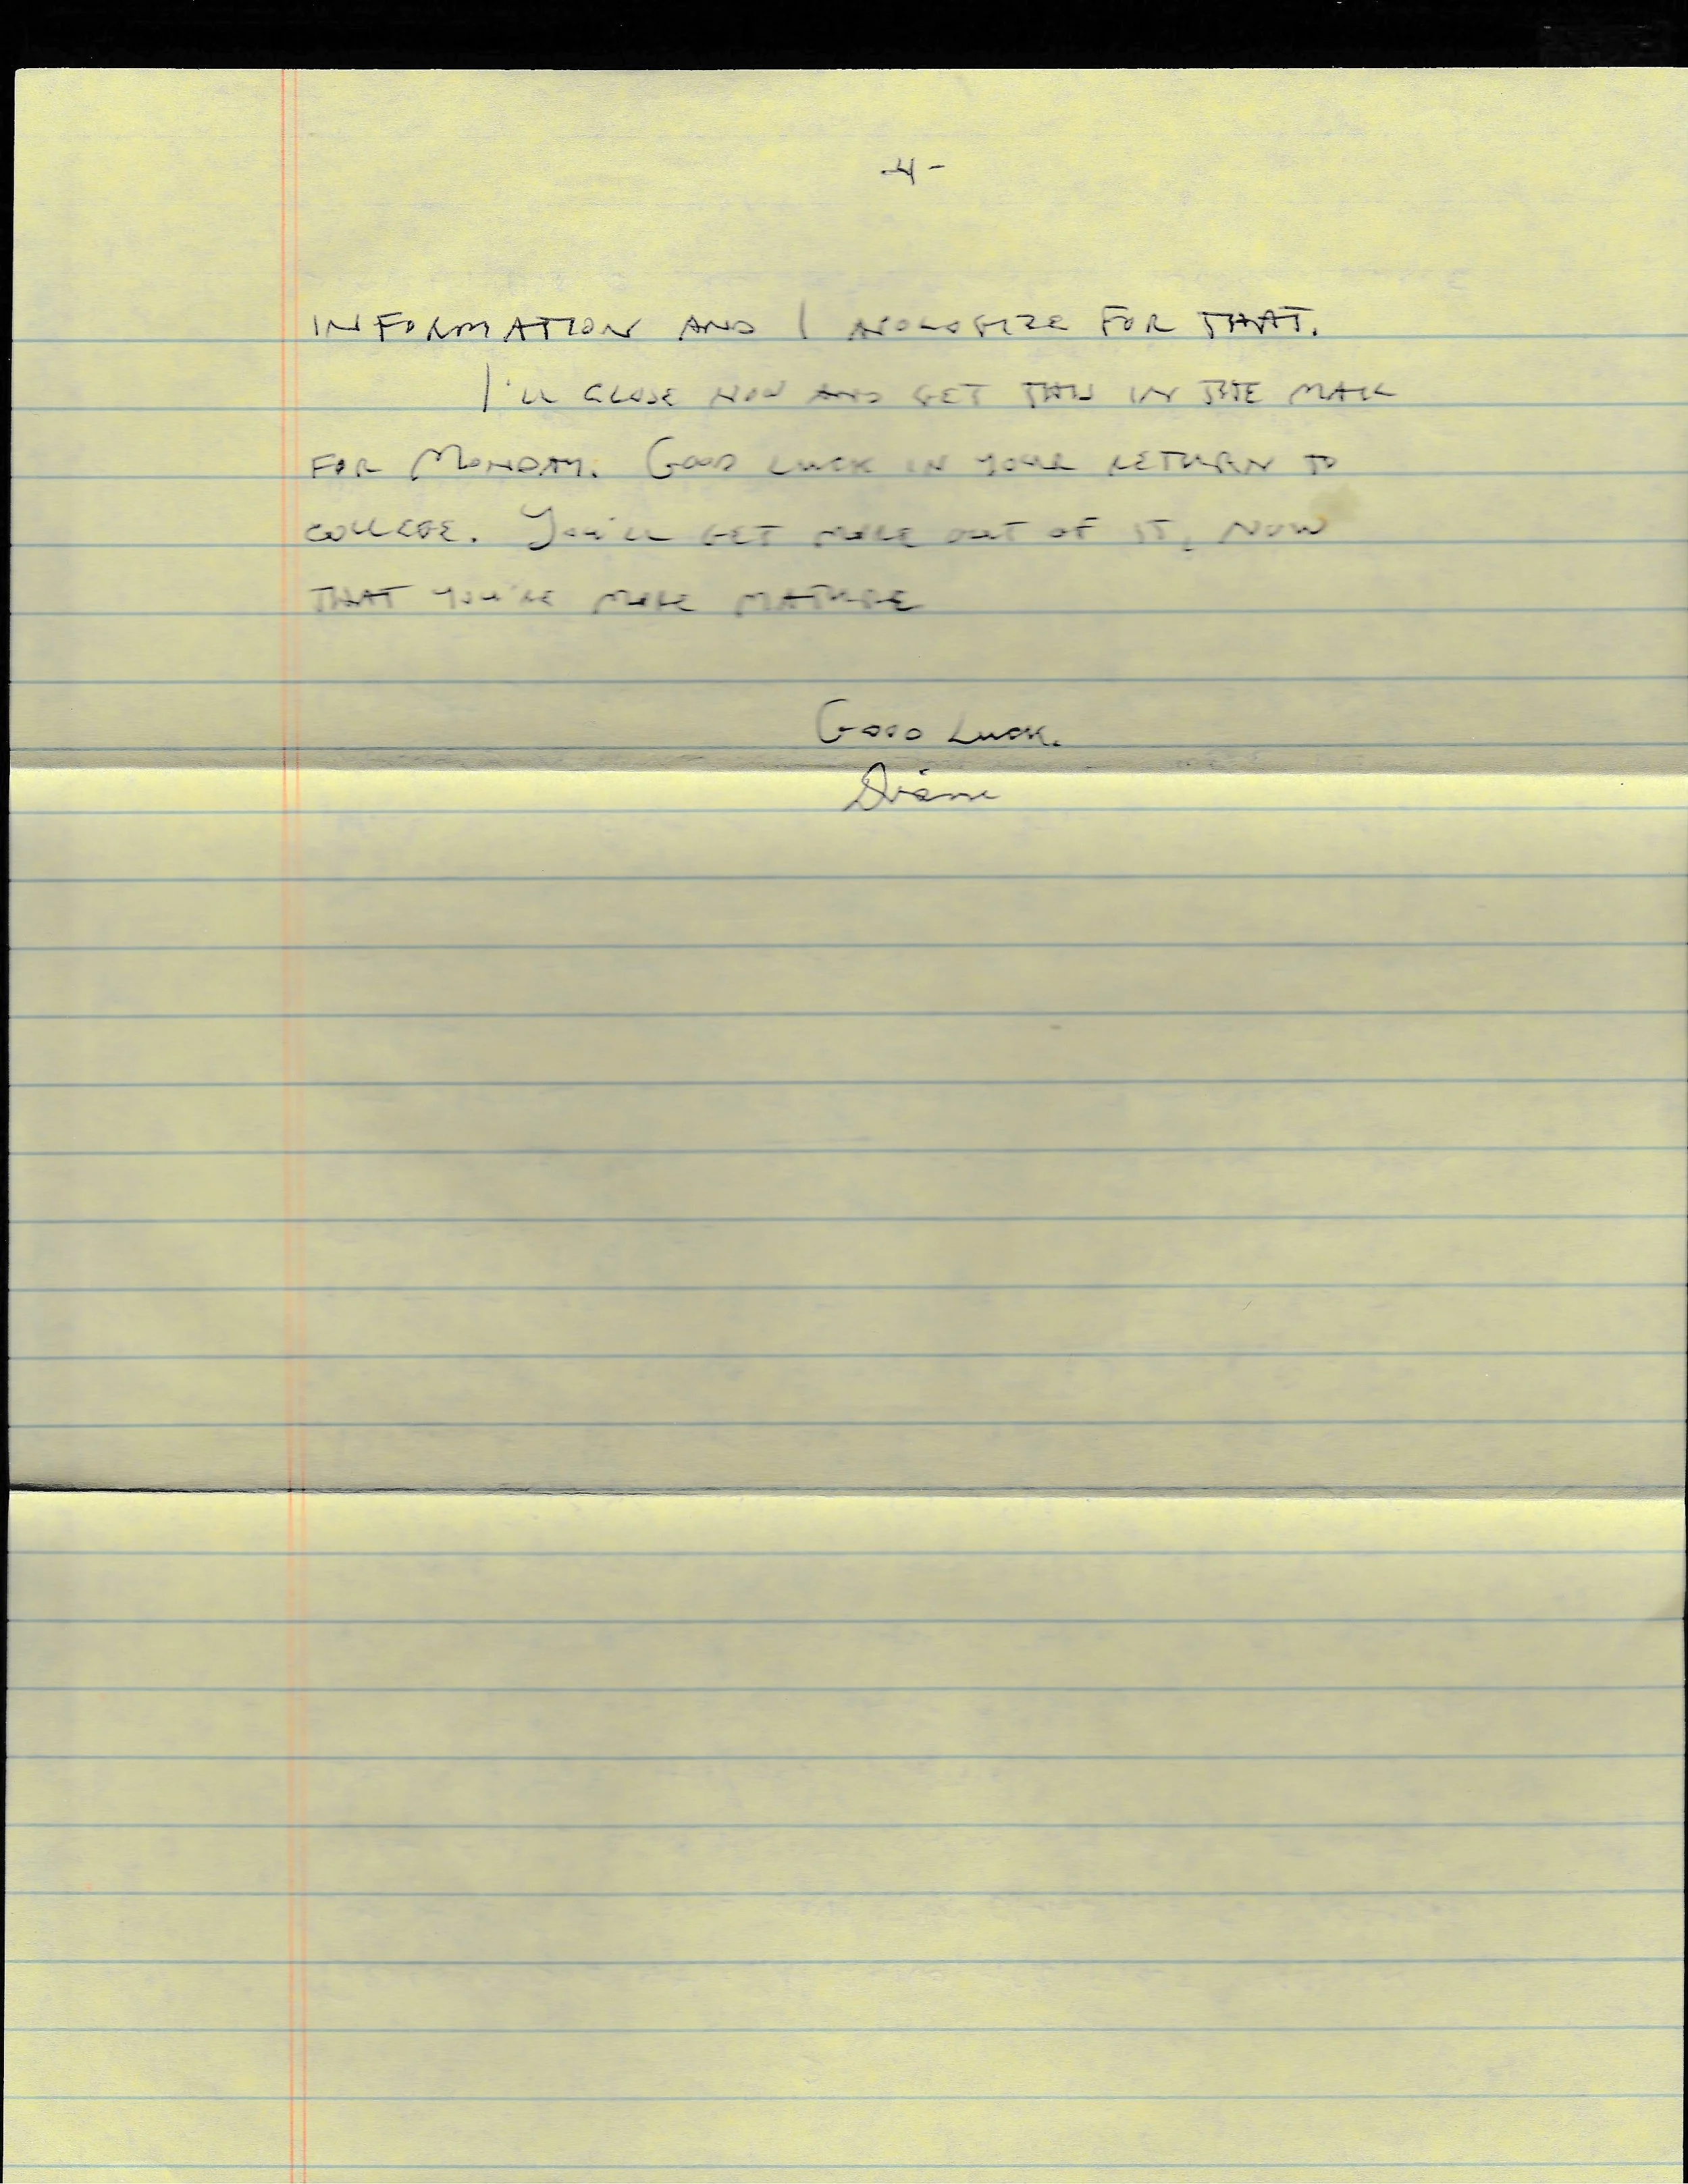 -4-
INFORMATION AND I APOLOGIZE FOR THAT.
I'LL CLOSE NOW AND GET THIS IN THE MAIL
FOR MONDAY. GOOD LUCK IN YOUR RETURN TO
COLLEGE. YOU'LL GET MORE OUT OF IT, NOW
THAT YOU'RE MORE MATURE
GOOD LUCK.
Diane